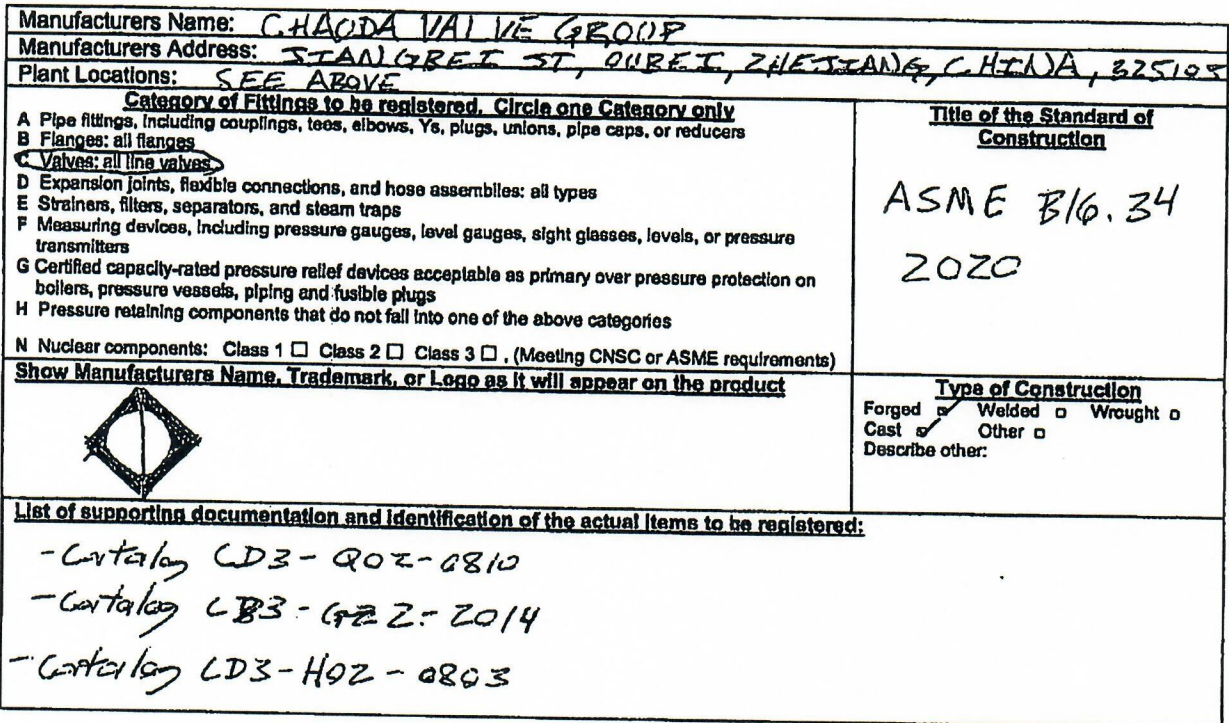 Manufacturers Name: CHAODA VALVE GROUP
Manufacturers Address: JIANGBEI ST, OUBEI, ZHEJIANG, CHINA, 325105
Plant Locations: SEE ABOVE
Category of Fittings to be registered. Circle one Category only
A Pipe fittings, including couplings, tees, elbows, Ys, plugs, unions, pipe caps, or reducers
B Flanges: all flanges
C Valves: all line valves
D Expansion joints, flexible connections, and hose assemblies: all types
E Strainers, filters, separators, and steam traps
F Measuring devices, including pressure gauges, level gauges, sight glasses, levels, or pressure
transmitters
G Certified capacity-rated pressure relief devices acceptable as primary over pressure protection on
boilers, pressure vessels, piping and fusible plugs
H Pressure retaining components that do not fall into one of the above categories
N Nuclear components: Class 1 □ Class 2 □ Class 3 □ , (Meeting CNSC or ASME requirements)
Title of the Standard of
Construction
ASME B16.34
2020
Show Manufacturers Name, Trademark, or Logo as it will appear on the product
Type of Construction
Forged ☑ Welded □ Wrought □
Cast ☑ Other □
Describe other:
List of supporting documentation and identification of the actual items to be registered:
- Catalog CD3-Q02-0810
- Catalog 2014
- Catalog CD3-H02-0803